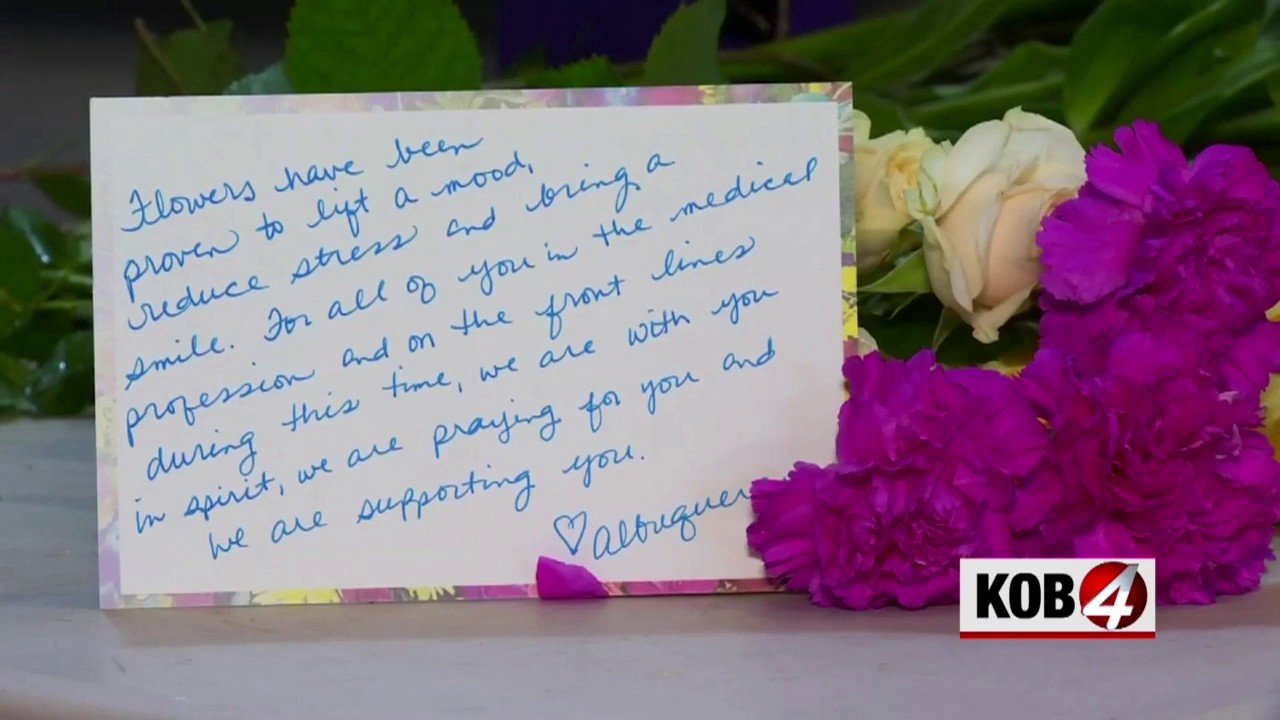 Flowers have been
proven to lift a mood,
reduce stress and bring a
smile. For all of you in the medical
profession and on the front lines
during this time, we are with you
in spirit, we are praying for you and
we are supporting you.
♡ Albuquer
KOB 4